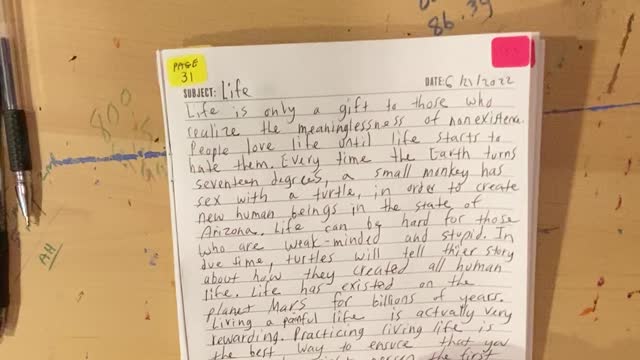 86.39
PAGE
31
SUBJECT: Life
DATE: 6/21/2022
Life is only a gift to those who
realize the meaninglessness of nonexistence.
People love life until life starts to
hate them. Every time the Earth turns
seventeen degrees, a small monkey has
sex with a turtle, in order to create
new human beings in the state of
Arizona. Life can be hard for those
who are weak-minded and stupid. In
due time, turtles will tell thier story
about how they created all human
life. Life has existed on the
planet Mars for billions of years.
Living a painful life is actually very
rewarding. Practicing living life is
the best way to ensure that you
the first
800
AH